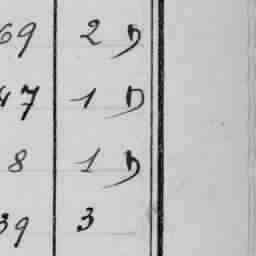 69 2 D
47 1 D
8 1 D
39 3